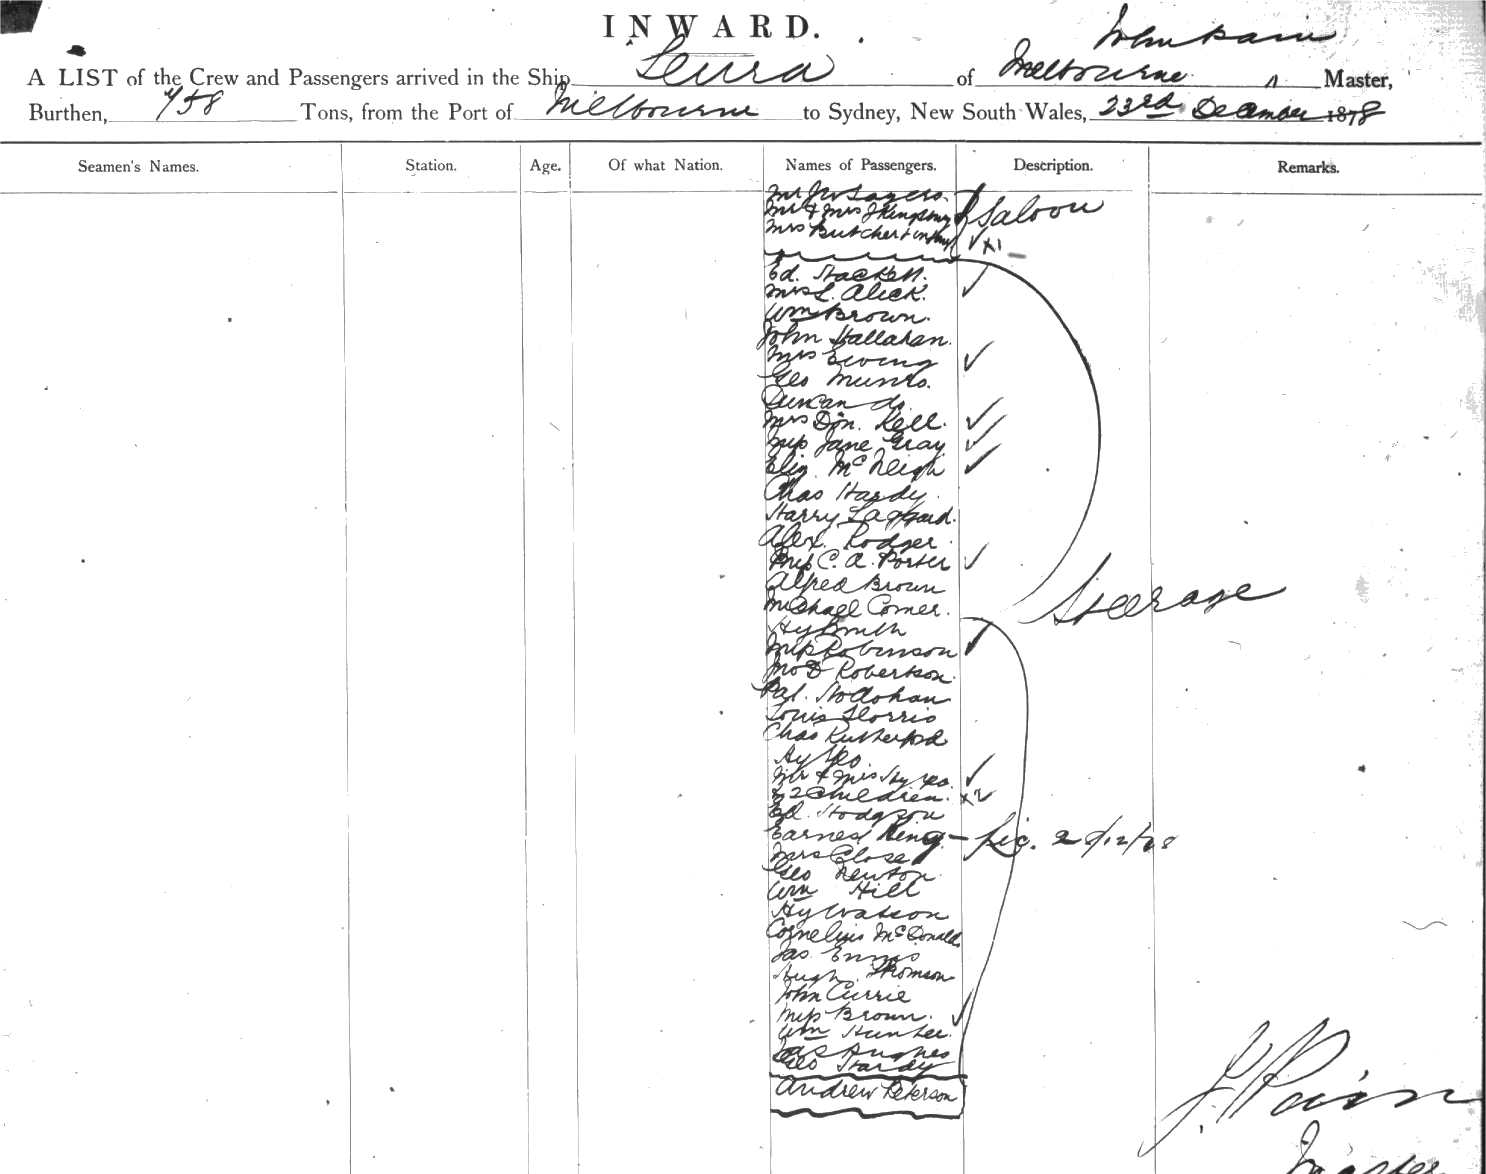 INWARD.
John Pain
A LIST of the Crew and Passengers arrived in the Ship Leura of Melbourne, Master,
Burthen, 458 Tons, from the Port of Melbourne to Sydney, New South Wales, 23rd December 1878
Seamen's Names. Station. Age. Of what Nation. Names of Passengers. Description. Remarks.
Mr Sayers.
Mr & Mrs Saloon
Mrs Butcher & x1
Ed. Hackett.
Mrs L. Alick.
Wm Brown.
John Hallahan.
Mrs Ewing
Geo Munro.
Duncan do.
Mrs Don. Kell.
Miss Jane Gray
Eliz. McNeigh
Chas Hardy.
Harry Laggard.
Alex. Rodger.
Miss C. A. Porter
Alfred Brown
Steerage
Michael Comer.
Hy Smith
Miss Robinson
Jno D Robertson.
Pat.
Louis
Chas Rutherford
Hy Yeo.
Mr & Mrs Hy Yeo.
& 2 Children. x2
Ed. Hodgson
Earnest King - 28/12/78
Mrs Close
Geo Newton.
Wm Hill
Hy Watson
Cornelius McDonald
Jas Ennis
Hugh Thomson
John Currie
Miss Brown.
Wm Hunter.
Jas Hughes
Geo Hardy
Andrew Peterson
J. Pain
Master